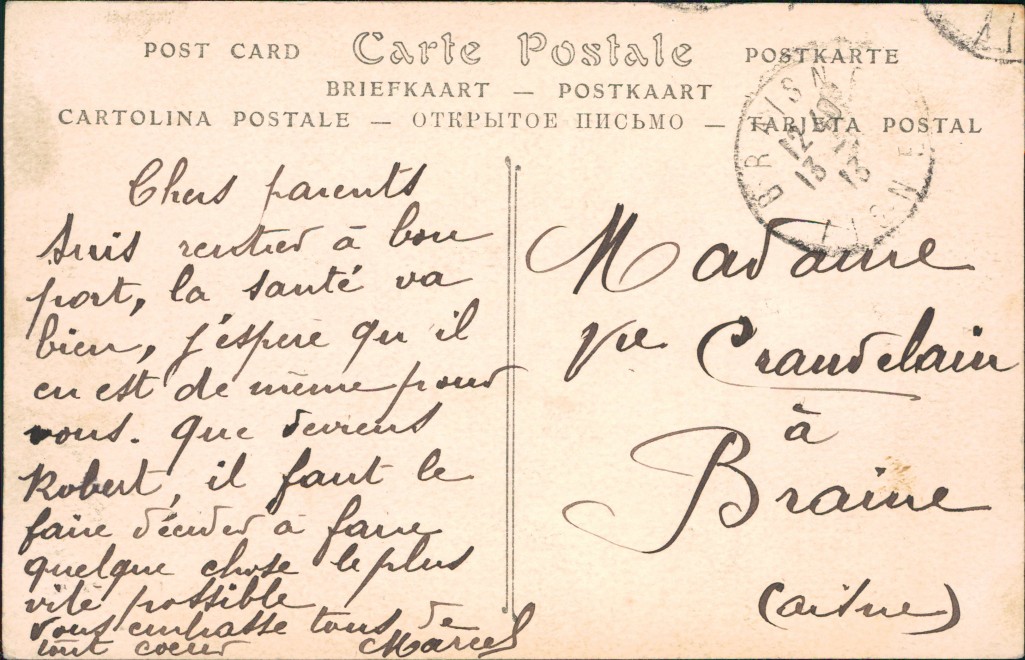 POST CARD Carte Postale POSTKARTE
BRIEFKAART — POSTKAART
CARTOLINA POSTALE — ОТКРЫТОЕ ПИСЬМО — TARJETA POSTAL
BRAISNE
AISNE
13
13
Chers parents
suis rentred à bon
port, la santé va
bien, j'espere qu il
en est de même pour
vous. que deviens
Robert, il faut le
faire décider à faire
quelque chose le plus
vite possible
vous embrasse tous de
tout coeur Marcel
Madame
Vve Craudelain
à
Braine
(aisne)